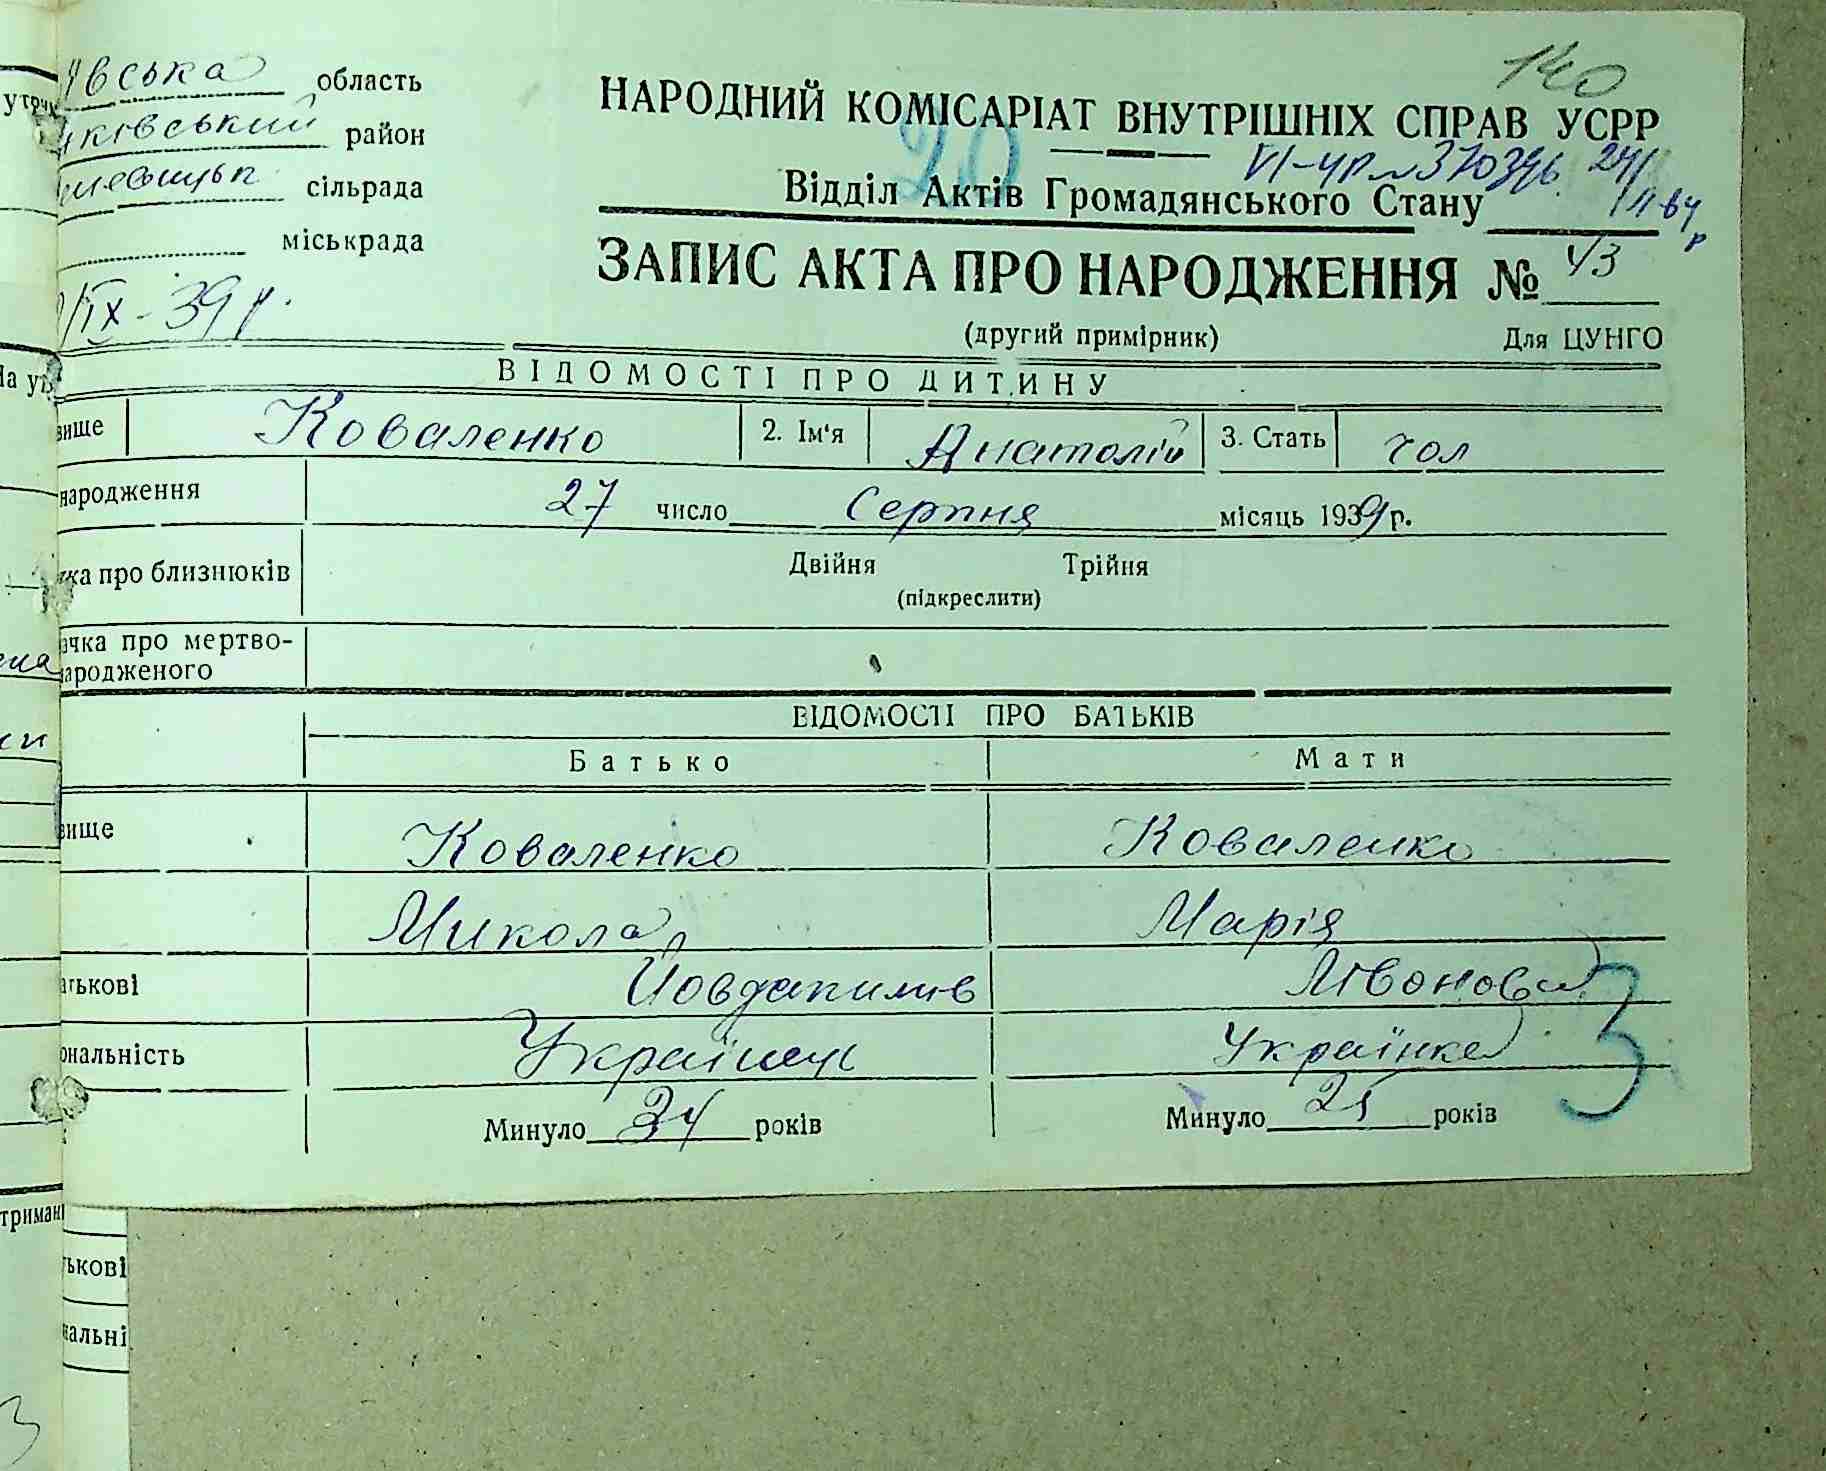 ївська область
ківський район
сільрада
міськрада
/ІХ - 39 р.
140
НАРОДНИЙ КОМІСАРІАТ ВНУТРІШНІХ СПРАВ УСРР
20
Відділ Актів Громадянського Стану
ЗАПИС АКТА ПРО НАРОДЖЕННЯ № 43
(другий примірник) Для ЦУНГО
ВІДОМОСТІ ПРО ДИТИНУ
вище Коваленко 2. Ім'я Анатолій 3. Стать чол
народження 27 число Серпня місяць 1939 р.
чка про близнюків Двійня Трійня
(підкреслити)
ачка про мертво-
народженого
ВІДОМОСТІ ПРО БАТЬКІВ
Батько Мати
вище Коваленко Коваленко
Микола Марія
атькові
ональність Українець Українка
Минуло 34 років Минуло 25 років
3
тримані
тькові
нальні